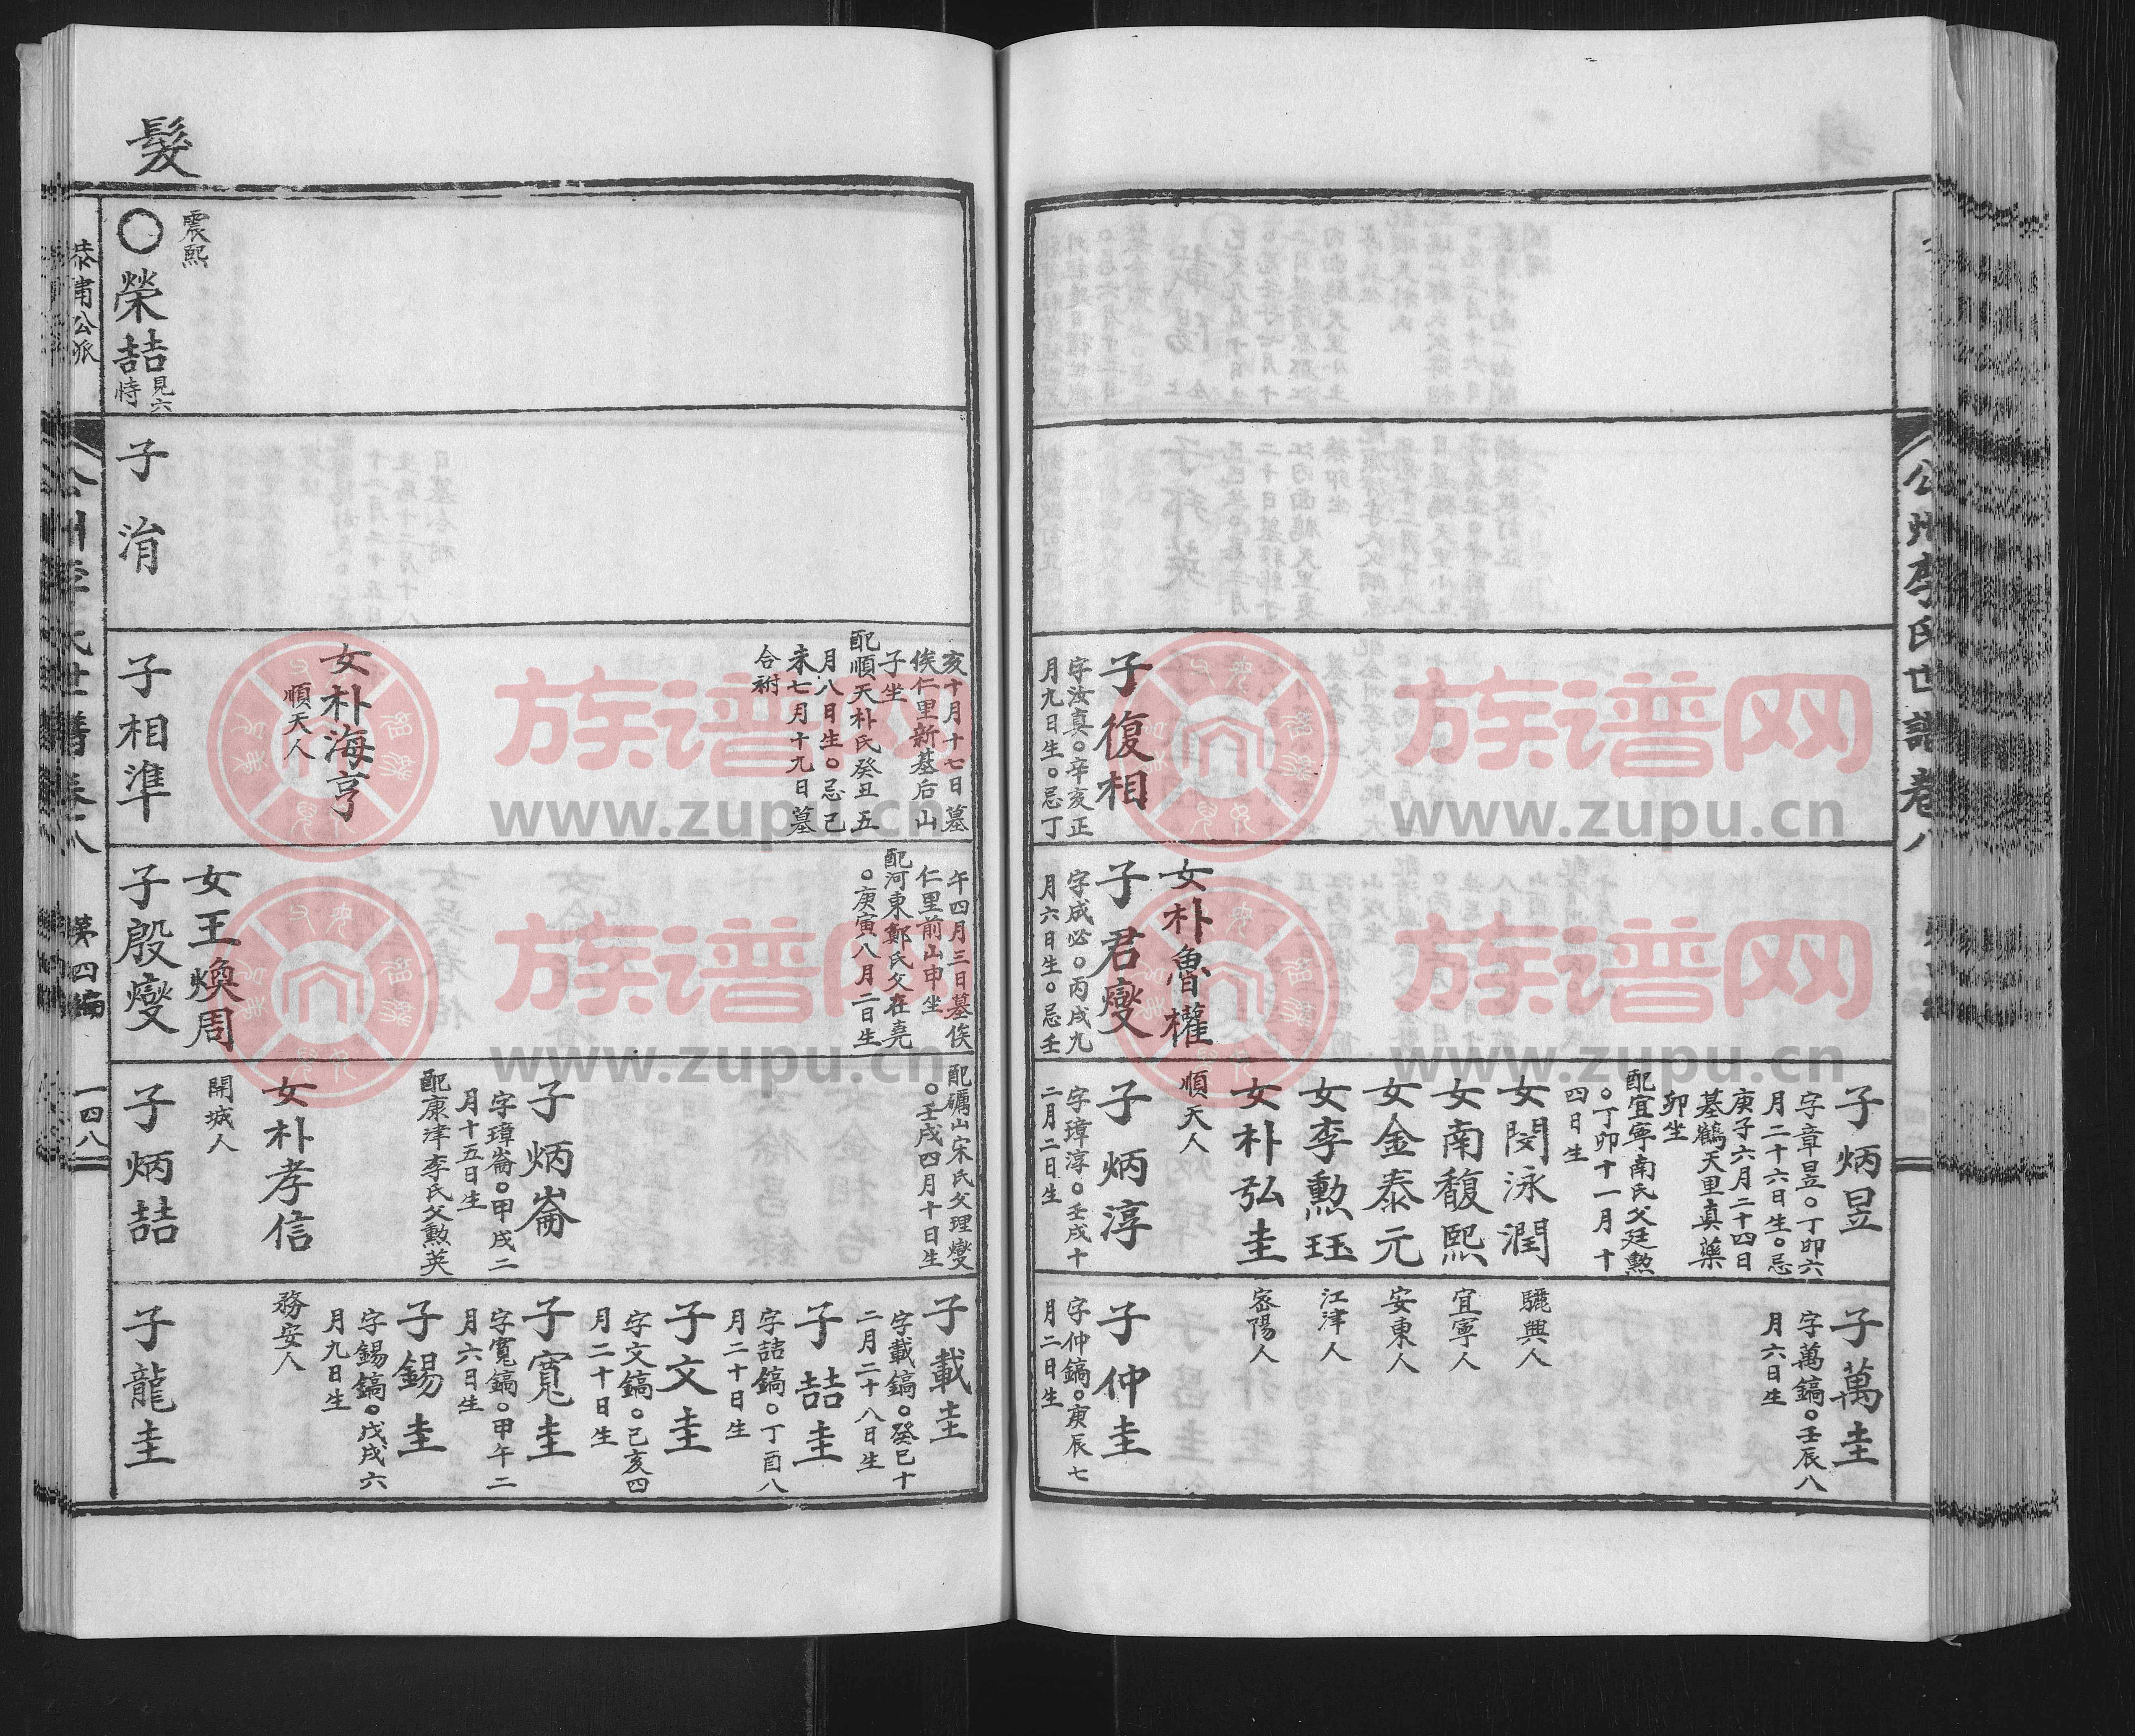 公州李氏世譜 卷八
子復相
字汝真○辛亥正
月九日生○忌丁
亥十月十七日墓
俟仁里新基后山
子坐
配順天朴氏癸丑五
月八日生○忌己
未七月十九日墓
合祔
女朴海亨
順天人
子相準
女朴魯權
順天人
子君燮
字成必○丙戌九
月六日生○忌壬
午四月三日墓俟
仁里前山申坐
配河東鄭氏父在堯
○庚寅八月二日生
女王煥周
開城人
子殷燮
子炳昱
字章昱○丁卯六
月二十六日生○忌
庚子六月二十四日
墓鶴天里真藥
卯坐
配宜寧南氏父廷勲
○丁卯十一月十
四日生
女閔泳潤
驪興人
女南馥熙
宜寧人
女金泰元
安東人
女李勲珏
江津人
女朴弘圭
密陽人
子炳淳
字璋淳○壬戌十
二月二日生
配礪山宋氏父理燮
○壬戌四月十日生
子炳崙
字璋崙○甲戌二
月十五日生
配康津李氏父勲英
女朴孝信
務安人
子炳喆
子萬圭
字萬鎬○壬辰八
月六日生
子仲圭
字仲鎬○庚辰七
月二日生
子載圭
字載鎬○癸巳十
二月二十八日生
子喆圭
字喆鎬○丁酉八
月二十日生
子文圭
字文鎬○己亥四
月二十日生
子寬圭
字寬鎬○甲午二
月六日生
子錫圭
字錫鎬○戊戌六
月九日生
子龍圭
髮
震熙
○榮喆 見六 恃
子湑
恭肅公派
公州李氏世譜卷八 第四編 一四八
族谱网
www.zupu.cn
族谱网
www.zupu.cn
族谱网
www.zupu.cn
族谱网
www.zupu.cn